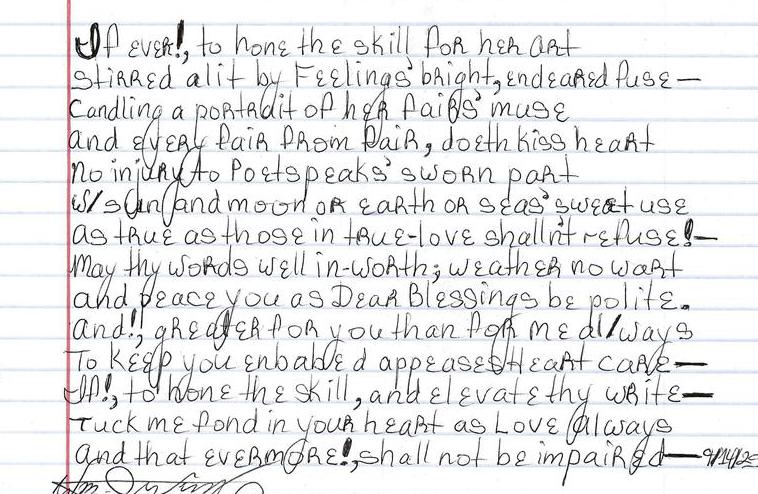 If ever!, to hone the skill for her art
stirred alit by Feelings' bright, endeared fuse—
Candling a portrait of her fairs' muse
and every fair from fair, doeth kiss heart
no injury to Poetspeaks' sworn part
w/ sun and moon or earth or seas' sweet use
as true as those in true-love shalln't refuse!—
may thy words well in-worth; weather no wart
and peace you as Dear Blessings be polite.
and!, greater for you than for me always
To keep you enbabed appeases Heart care—
If!, to hone the skill, and elevate thy write—
Tuck me fond in your heart as Love always
and that evermore!, shall not be impaired—